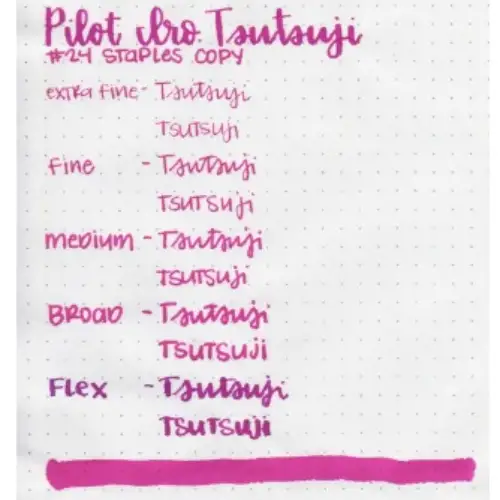 Pilot Iro. Tsutsuji
#24 STAPLES COPY
extra fine - Tsutsuji
TSUTSUji
fine - Tsutsuji
TSUTSUji
medium - Tsutsuji
TSUTSUji
BROAD - Tsutsuji
TSUTSUji
Flex - Tsutsuji
TSUTSUji